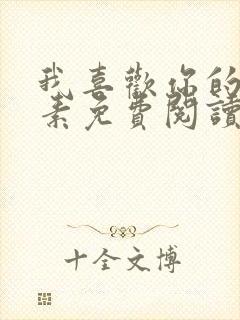 我喜歡你的
素免費閱讀
十全文博